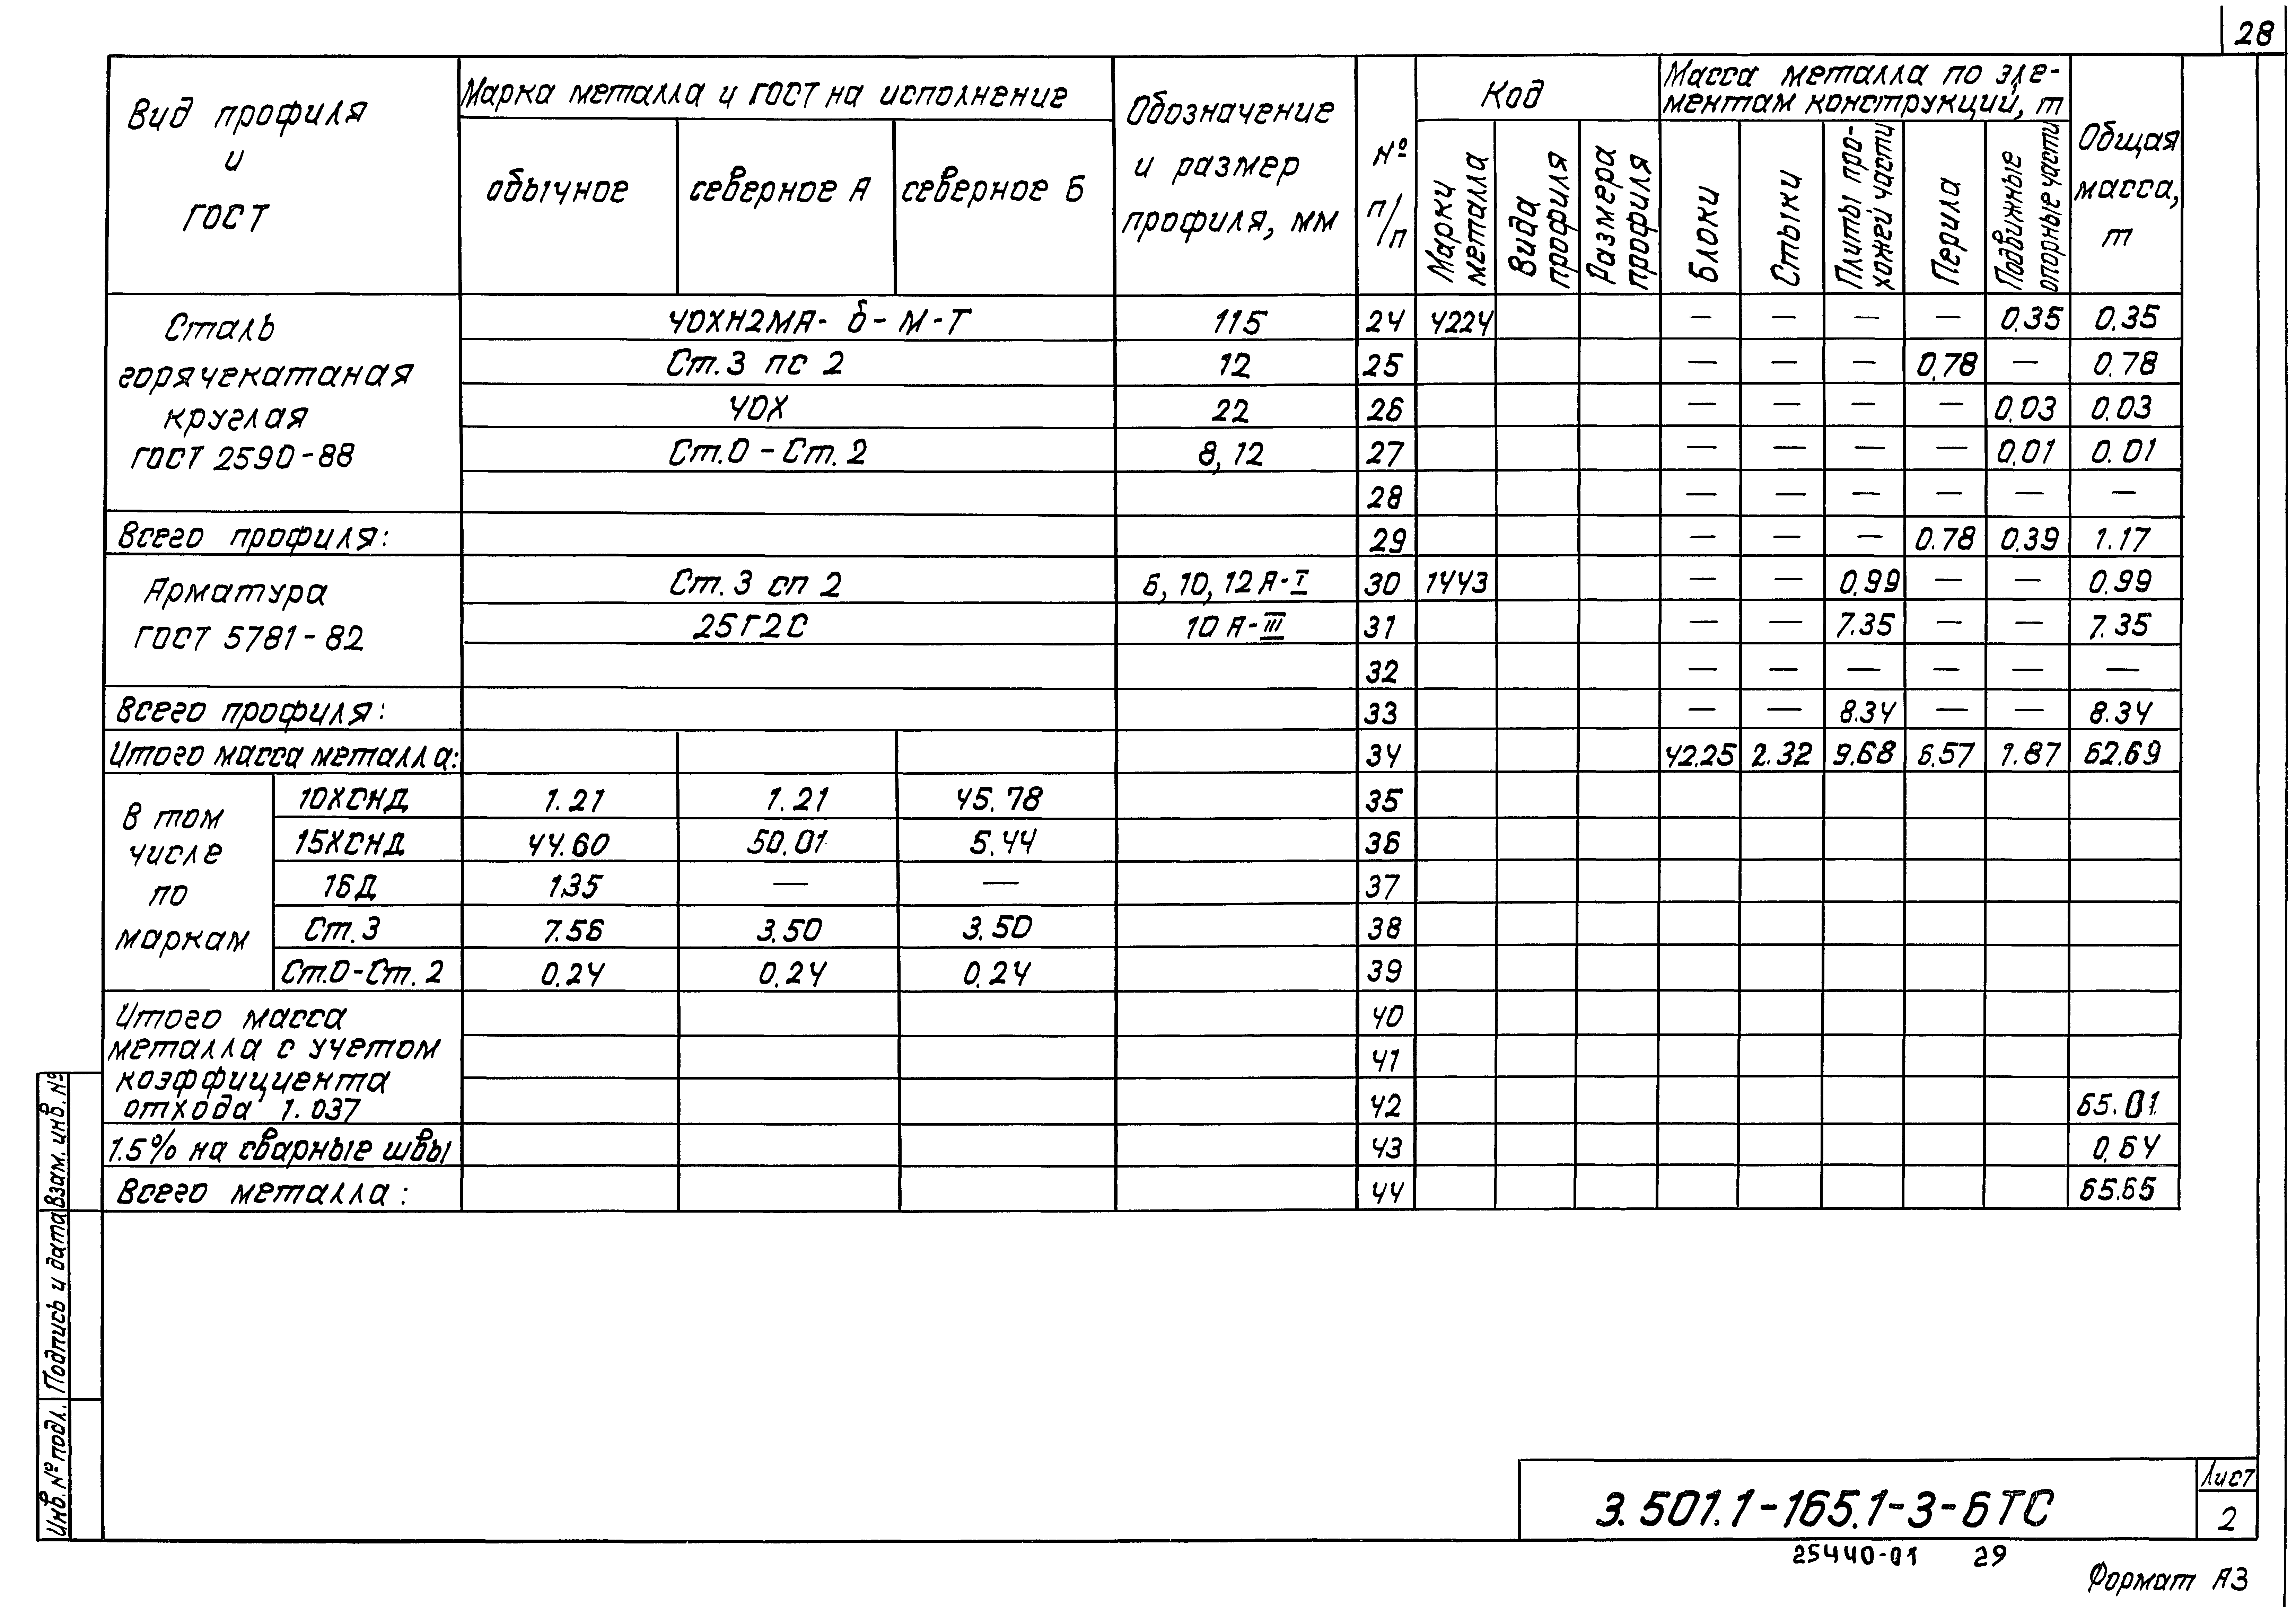 28
Вид профиля и ГОСТ
Марка металла и ГОСТ на исполнение
обычное
северное А
северное Б
Обозначение и размер профиля, мм
№ п/п
Код
Марки металла
Вида профиля
Размера профиля
Масса металла по эле-
ментам конструкций, т
Блоки
Стыки
Плиты про-
хожей части
Перила
Подвижные опорные части
Общая масса, т
Сталь
горячекатаная
круглая
ГОСТ 2590-88
40ХН2МА- б- М-Т 115 24 4224 — — — — 0.35 0.35
Ст.3 пс 2 12 25 — — — 0.78 — 0.78
40Х 22 26 — — — — 0.03 0.03
Ст.0 - Ст. 2 8, 12 27 — — — — 0.01 0.01
28 — — — — — —
Всего профиля: 29 — — — 0.78 0.39 1.17
Арматура
ГОСТ 5781-82
Ст. 3 сп 2 6, 10, 12 А-I 30 1443 — — 0.99 — — 0.99
25Г2С 10 А-III 31 — — 7.35 — — 7.35
32 — — — — — —
Всего профиля: 33 — — 8.34 — — 8.34
Итого масса металла: 34 42.25 2.32 9.68 6.57 1.87 62.69
В том
числе
по
маркам
10ХСНД 1.21 1.21 45.78 35
15ХСНД 44.60 50.01 5.44 36
16Д 1.35 — — 37
Ст. 3 7.56 3.50 3.50 38
Ст.0-Ст. 2 0.24 0.24 0.24 39
Итого масса
металла с учетом
коэффициента
отхода 1.037
40
41
42 65.01
1.5% на сварные швы 43 0.64
Всего металла: 44 65.65
Взам. инв. №
Подпись и дата
Инв. № подл.
3.501.1-165.1-3-6ТС
Лист
2
25440-01 29
Формат А3